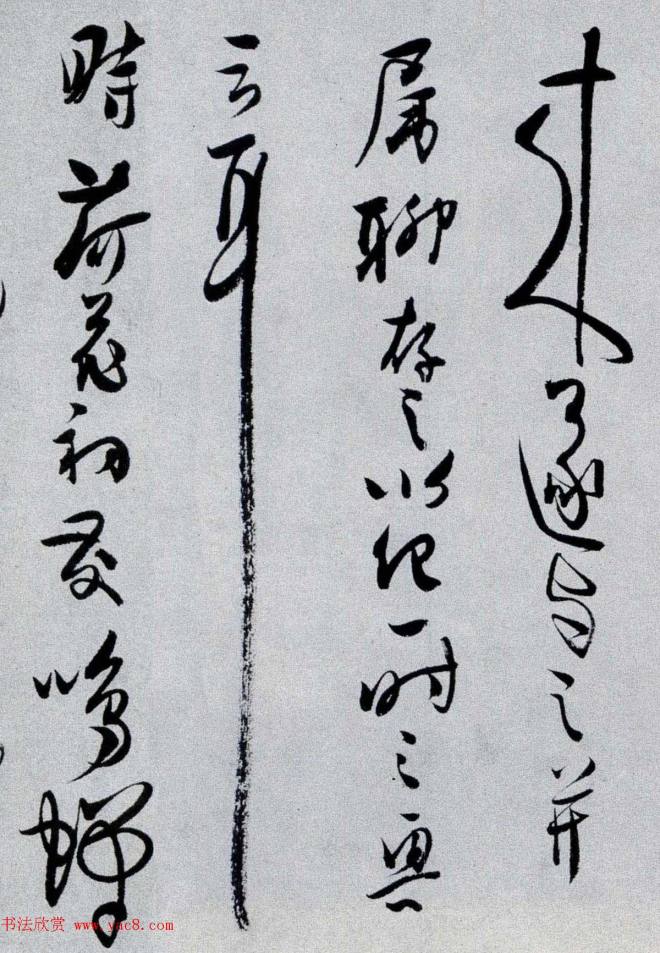 来遂与之并
属聊存之以纪一时之興
云耳
時荷花初發鳴蟬
书法欣赏 www.yac8.com